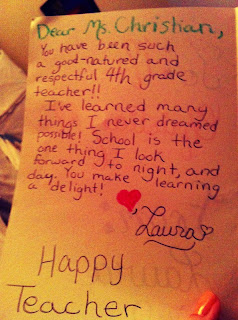 Dear Ms. Christian,
You have been such
a good-natured and
respectful 4th grade
teacher!!
I've learned many
things I never dreamed
possible! School is the
one thing I look
forward to night, and
day. You make learning
a delight!
Laura
Happy
Teacher